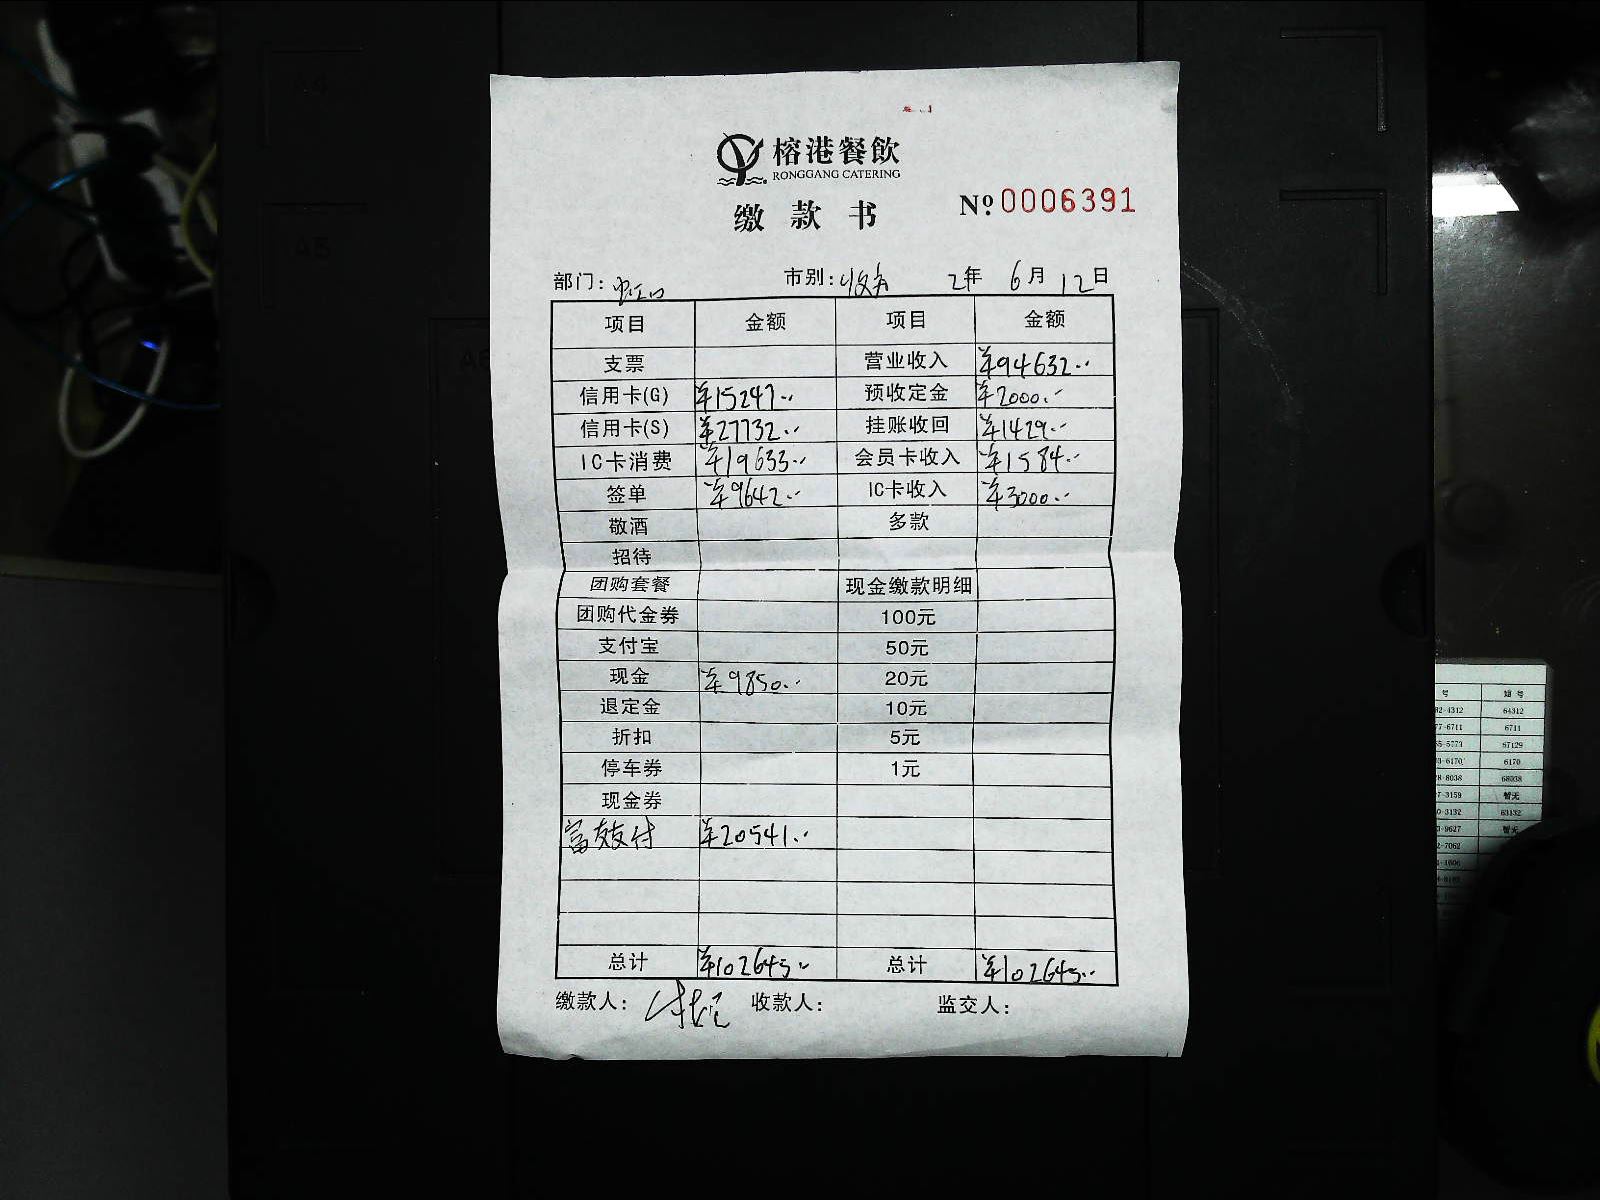 榕港餐飲
RONGGANG CATERING
缴款书
Nº 0006391
部门: 虹口 市别: 2年 6月 12日
项目 金额 项目 金额
支票 营业收入 ¥94632.--
信用卡(G) ¥15247.-- 预收定金 ¥2000.--
信用卡(S) ¥27732.-- 挂账收回 ¥1429.--
IC卡消费 ¥19633.-- 会员卡收入 ¥1584.--
签单 ¥9642.-- IC卡收入 ¥3000.--
敬酒 多款
招待
团购套餐 现金缴款明细
团购代金券 100元
支付宝 50元
现金 ¥9850.-- 20元
退定金 10元
折扣 5元
停车券 1元
现金券
富友支付 ¥20541.--
总计 ¥102645.-- 总计 ¥102645.--
缴款人: 收款人: 监交人:
号
64312
6711
67129
6170
68038
暂无
63132
暂无